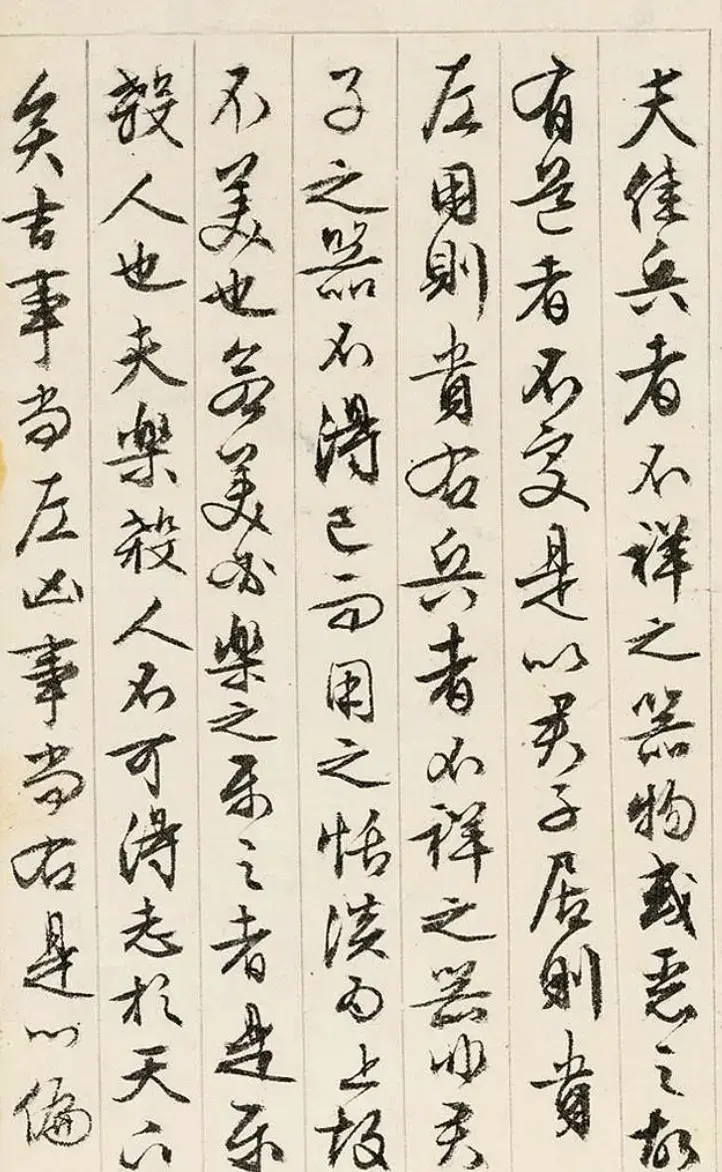 夫佳兵者不祥之器物或惡之故
有道者不處是以君子居則貴
左用則貴右兵者不祥之器非君
子之器不得已而用之恬淡為上故
不美也若美必樂之樂之者是樂
殺人也夫樂殺人不可得志於天下
矣吉事尚左凶事尚右是以偏